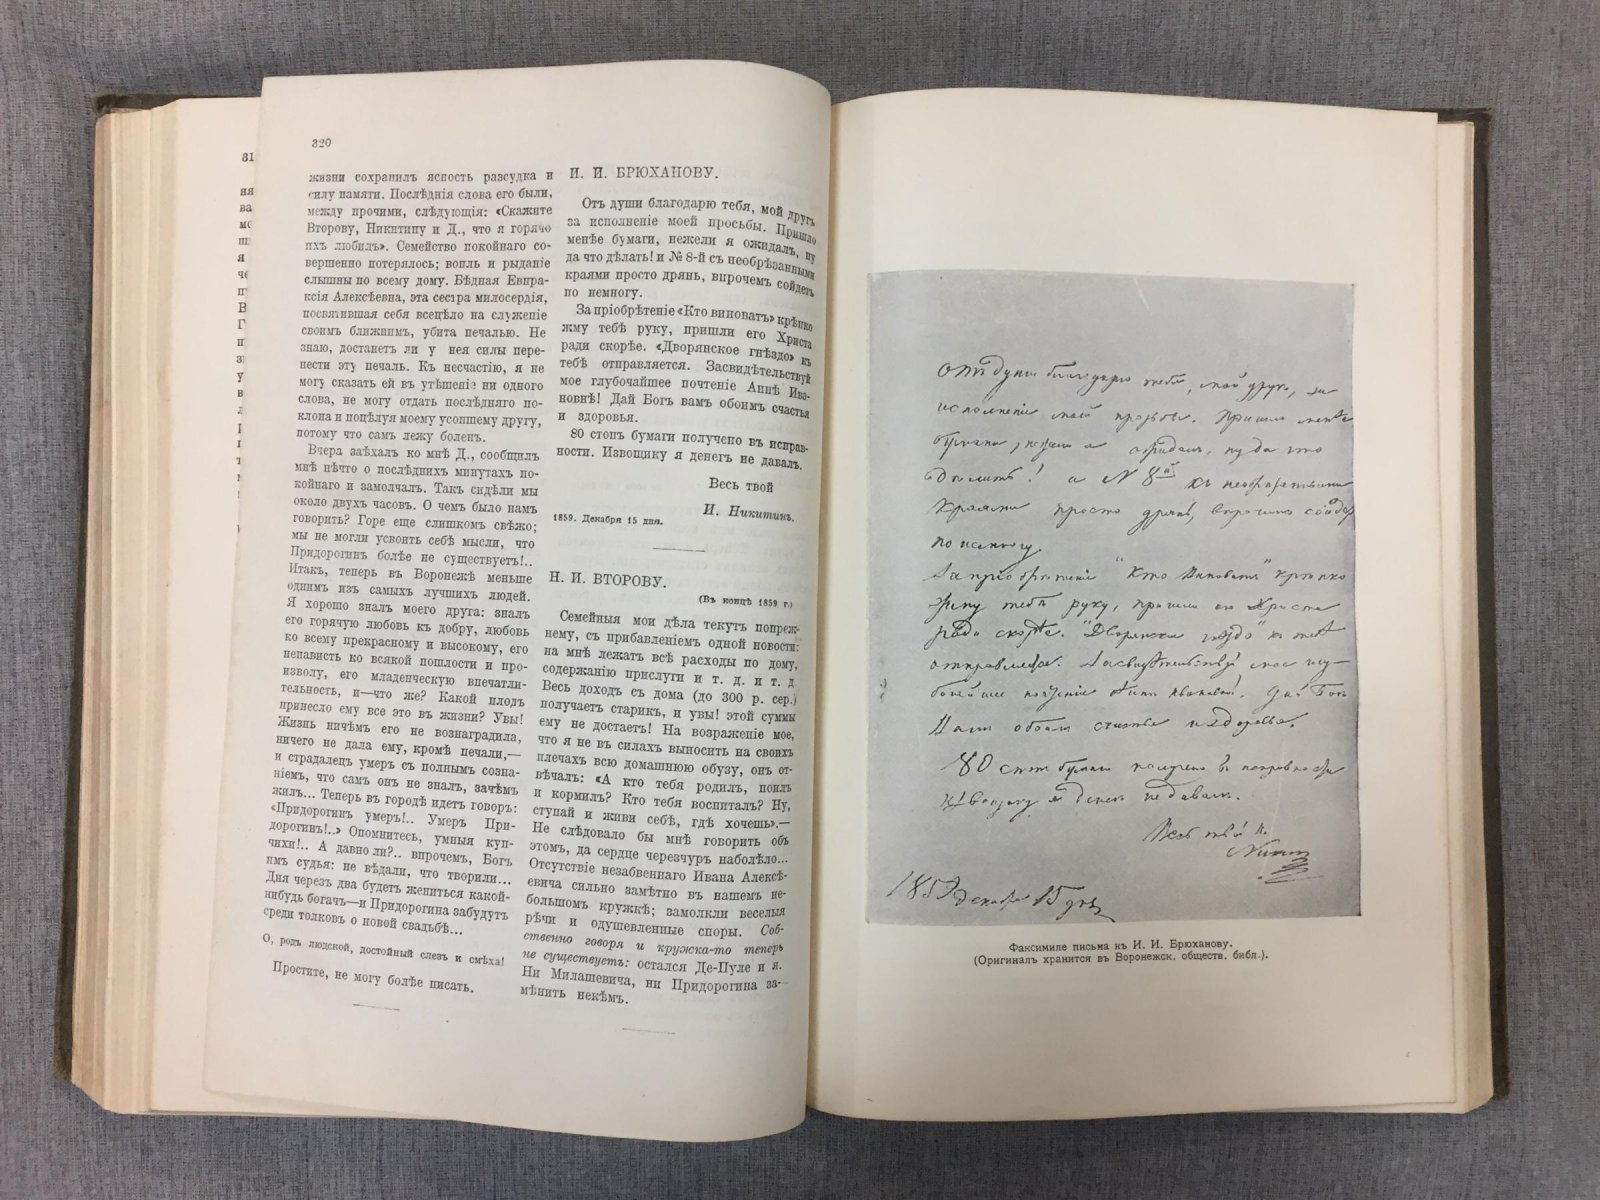 320
жизни сохранилъ ясность разсудка и
силу памяти. Послѣднія слова его были,
между прочими, слѣдующія: «Скажите
Второву, Никитину и Д., что я горячо
ихъ любилъ». Семейство покойнаго со-
вершенно потерялось; вопль и рыданіе
слышны по всему дому. Бѣдная Евпра-
ксія Алексѣевна, эта сестра милосердія,
посвятившая себя всецѣло на служеніе
своимъ ближнимъ, убита печалью. Не
знаю, достанетъ ли у нея силы пере-
нести эту печаль. Къ несчастію, я не
могу сказать ей въ утѣшеніе ни одного
слова, не могу отдать послѣдняго по-
клона и поцѣлуя моему усопшему другу,
потому что самъ лежу боленъ.
Вчера заѣхалъ ко мнѣ Д., сообщилъ
мнѣ нѣчто о послѣднихъ минутахъ по-
койнаго и замолчалъ. Такъ сидѣли мы
около двухъ часовъ. О чемъ было намъ
говорить? Горе еще слишкомъ свѣжо;
мы не могли усвоить себѣ мысли, что
Придорогинъ болѣе не существуетъ!..
Итакъ, теперь въ Воронежѣ меньше
однимъ изъ самыхъ лучшихъ людей.
Я хорошо зналъ моего друга: зналъ
его горячую любовь къ добру, любовь
ко всему прекрасному и высокому, его
ненависть ко всякой пошлости и про-
изволу, его младенческую впечатли-
тельность, и—что же? Какой плодъ
принесло ему все это въ жизни? Увы!
Жизнь ничѣмъ его не вознаградила,
ничего не дала ему, кромѣ печали,—
и страдалецъ умеръ съ полнымъ созна-
ніемъ, что самъ онъ не зналъ, зачѣмъ
жилъ... Теперь въ городѣ идетъ говоръ:
«Придорогинъ умеръ!.. Умеръ При-
дорогинъ!..» Опомнитесь, умныя куп-
чихи!.. А давно ли?.. впрочемъ, Богъ
имъ судья: не вѣдали, что творили...
Дня черезъ два будетъ жениться какой-
нибудь богачъ—и Придорогина забудутъ
среди толковъ о новой свадьбѣ...
О, родъ людской, достойный слезъ и смѣха!
Простите, не могу болѣе писать.
И. И. БРЮХАНОВУ.
Отъ души благодарю тебя, мой другъ
за исполненіе моей просьбы. Пришло
менѣе бумаги, нежели я ожидалъ, ну
да что дѣлать! и № 8-й съ необрѣзанными
краями просто дрянь, впрочемъ сойдетъ
по немногу.
За пріобрѣтеніе «Кто виноватъ» крѣпко
жму тебѣ руку, пришли его Христа
ради скорѣе. «Дворянское гнѣздо» къ
тебѣ отправляется. Засвидѣтельствуй
мое глубочайшее почтеніе Аннѣ Ива-
новнѣ! Дай Богъ вамъ обоимъ счастья
и здоровья.
80 стопъ бумаги получено въ исправ-
ности. Извощику я денегъ не давалъ.
Весь твой
И. Никитинъ.
1859. Декабря 15 дня.
Н. И. ВТОРОВУ.
(Въ концѣ 1859 г.)
Семейныя мои дѣла текутъ попреж-
нему, съ прибавленіемъ одной новости:
на мнѣ лежатъ всѣ расходы по дому,
содержанію прислуги и т. д. и т. д.
Весь доходъ съ дома (до 300 р. сер.)
получаетъ старикъ, и увы! этой суммы
ему не достаетъ! На возраженіе мое,
что я не въ силахъ выносить на своихъ
плечахъ всю домашнюю обузу, онъ от-
вѣчалъ: «А кто тебя родилъ, поилъ
и кормилъ? Кто тебя воспиталъ? Ну,
ступай и живи себѣ, гдѣ хочешь».—
Не слѣдовало бы мнѣ говорить объ
этомъ, да сердце черезчуръ наболѣло...
Отсутствіе незабвеннаго Ивана Алексѣ-
евича сильно замѣтно въ нашемъ не-
большомъ кружкѣ; замолкли веселыя
рѣчи и одушевленные споры. Соб-
ственно говоря и кружка-то теперь
не существуетъ: остался Де-Пуле и я.
Ни Милашевича, ни Придорогина за-
мѣнить некѣмъ.
Отъ души благодарю тебя, мой другъ, за
исполненіе моей просьбы. Пришло менѣе
бумаги, нежели я ожидалъ, ну да что
дѣлать! и N 8й съ необрѣзанными
краями просто дрянь, впрочемъ сойдетъ
по немногу.
За пріобрѣтеніе "Кто виноватъ" крѣпко
жму тебѣ руку, пришли его Христа
ради скорѣе. "Дворянское гнѣздо" къ тебѣ
отправляется. Засвидѣтельствуй мое глу-
бочайшее почтеніе Аннѣ Ивановнѣ! Дай Богъ
Вамъ обоимъ счастья и здоровья.
80 стопъ бумаги получено въ исправности
Извощику я денегъ не давалъ.
Весь твой И.
Никитинъ
1859 Декабря 15 дня
Факсимиле письма къ И. И. Брюханову.
(Оригиналъ хранится въ Воронежск. обществ. библ.).